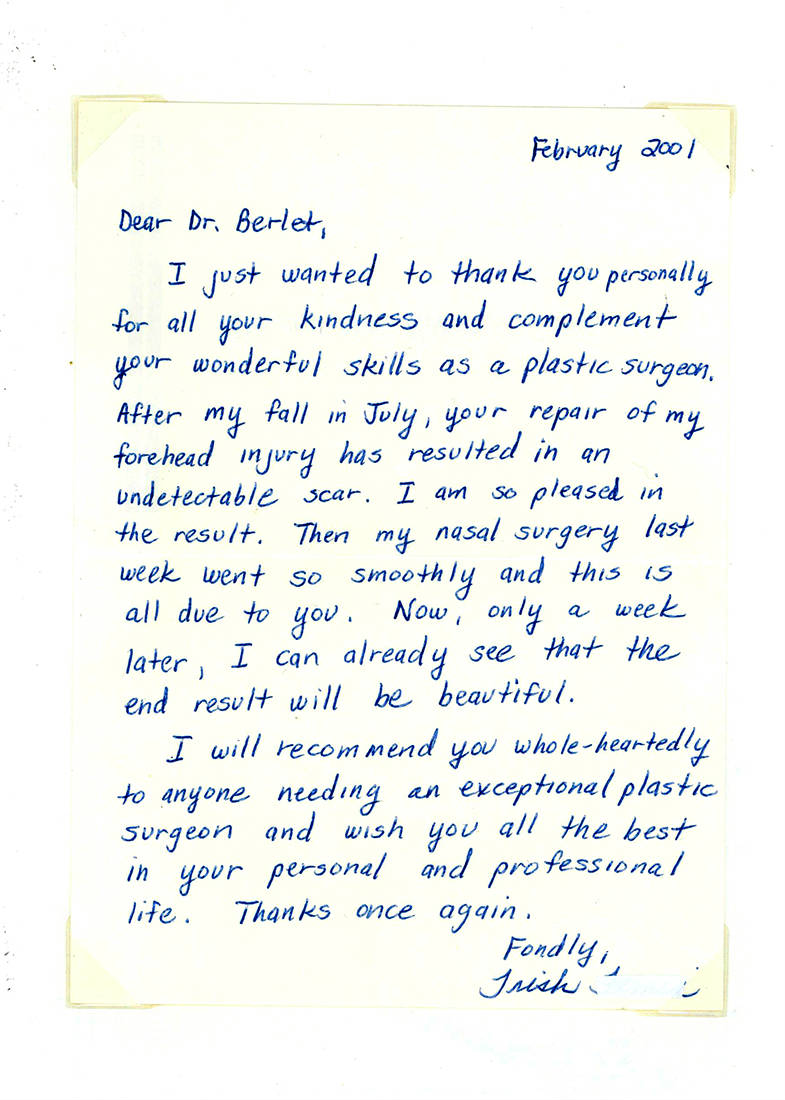 February 2001
Dear Dr. Berlet,
I just wanted to thank you personally
for all your kindness and complement
your wonderful skills as a plastic surgeon.
After my fall in July, your repair of my
forehead injury has resulted in an
undetectable scar. I am so pleased in
the result. Then my nasal surgery last
week went so smoothly and this is
all due to you. Now, only a week
later, I can already see that the
end result will be beautiful.
I will recommend you whole-heartedly
to anyone needing an exceptional plastic
surgeon and wish you all the best
in your personal and professional
life. Thanks once again.
Fondly,
Trish